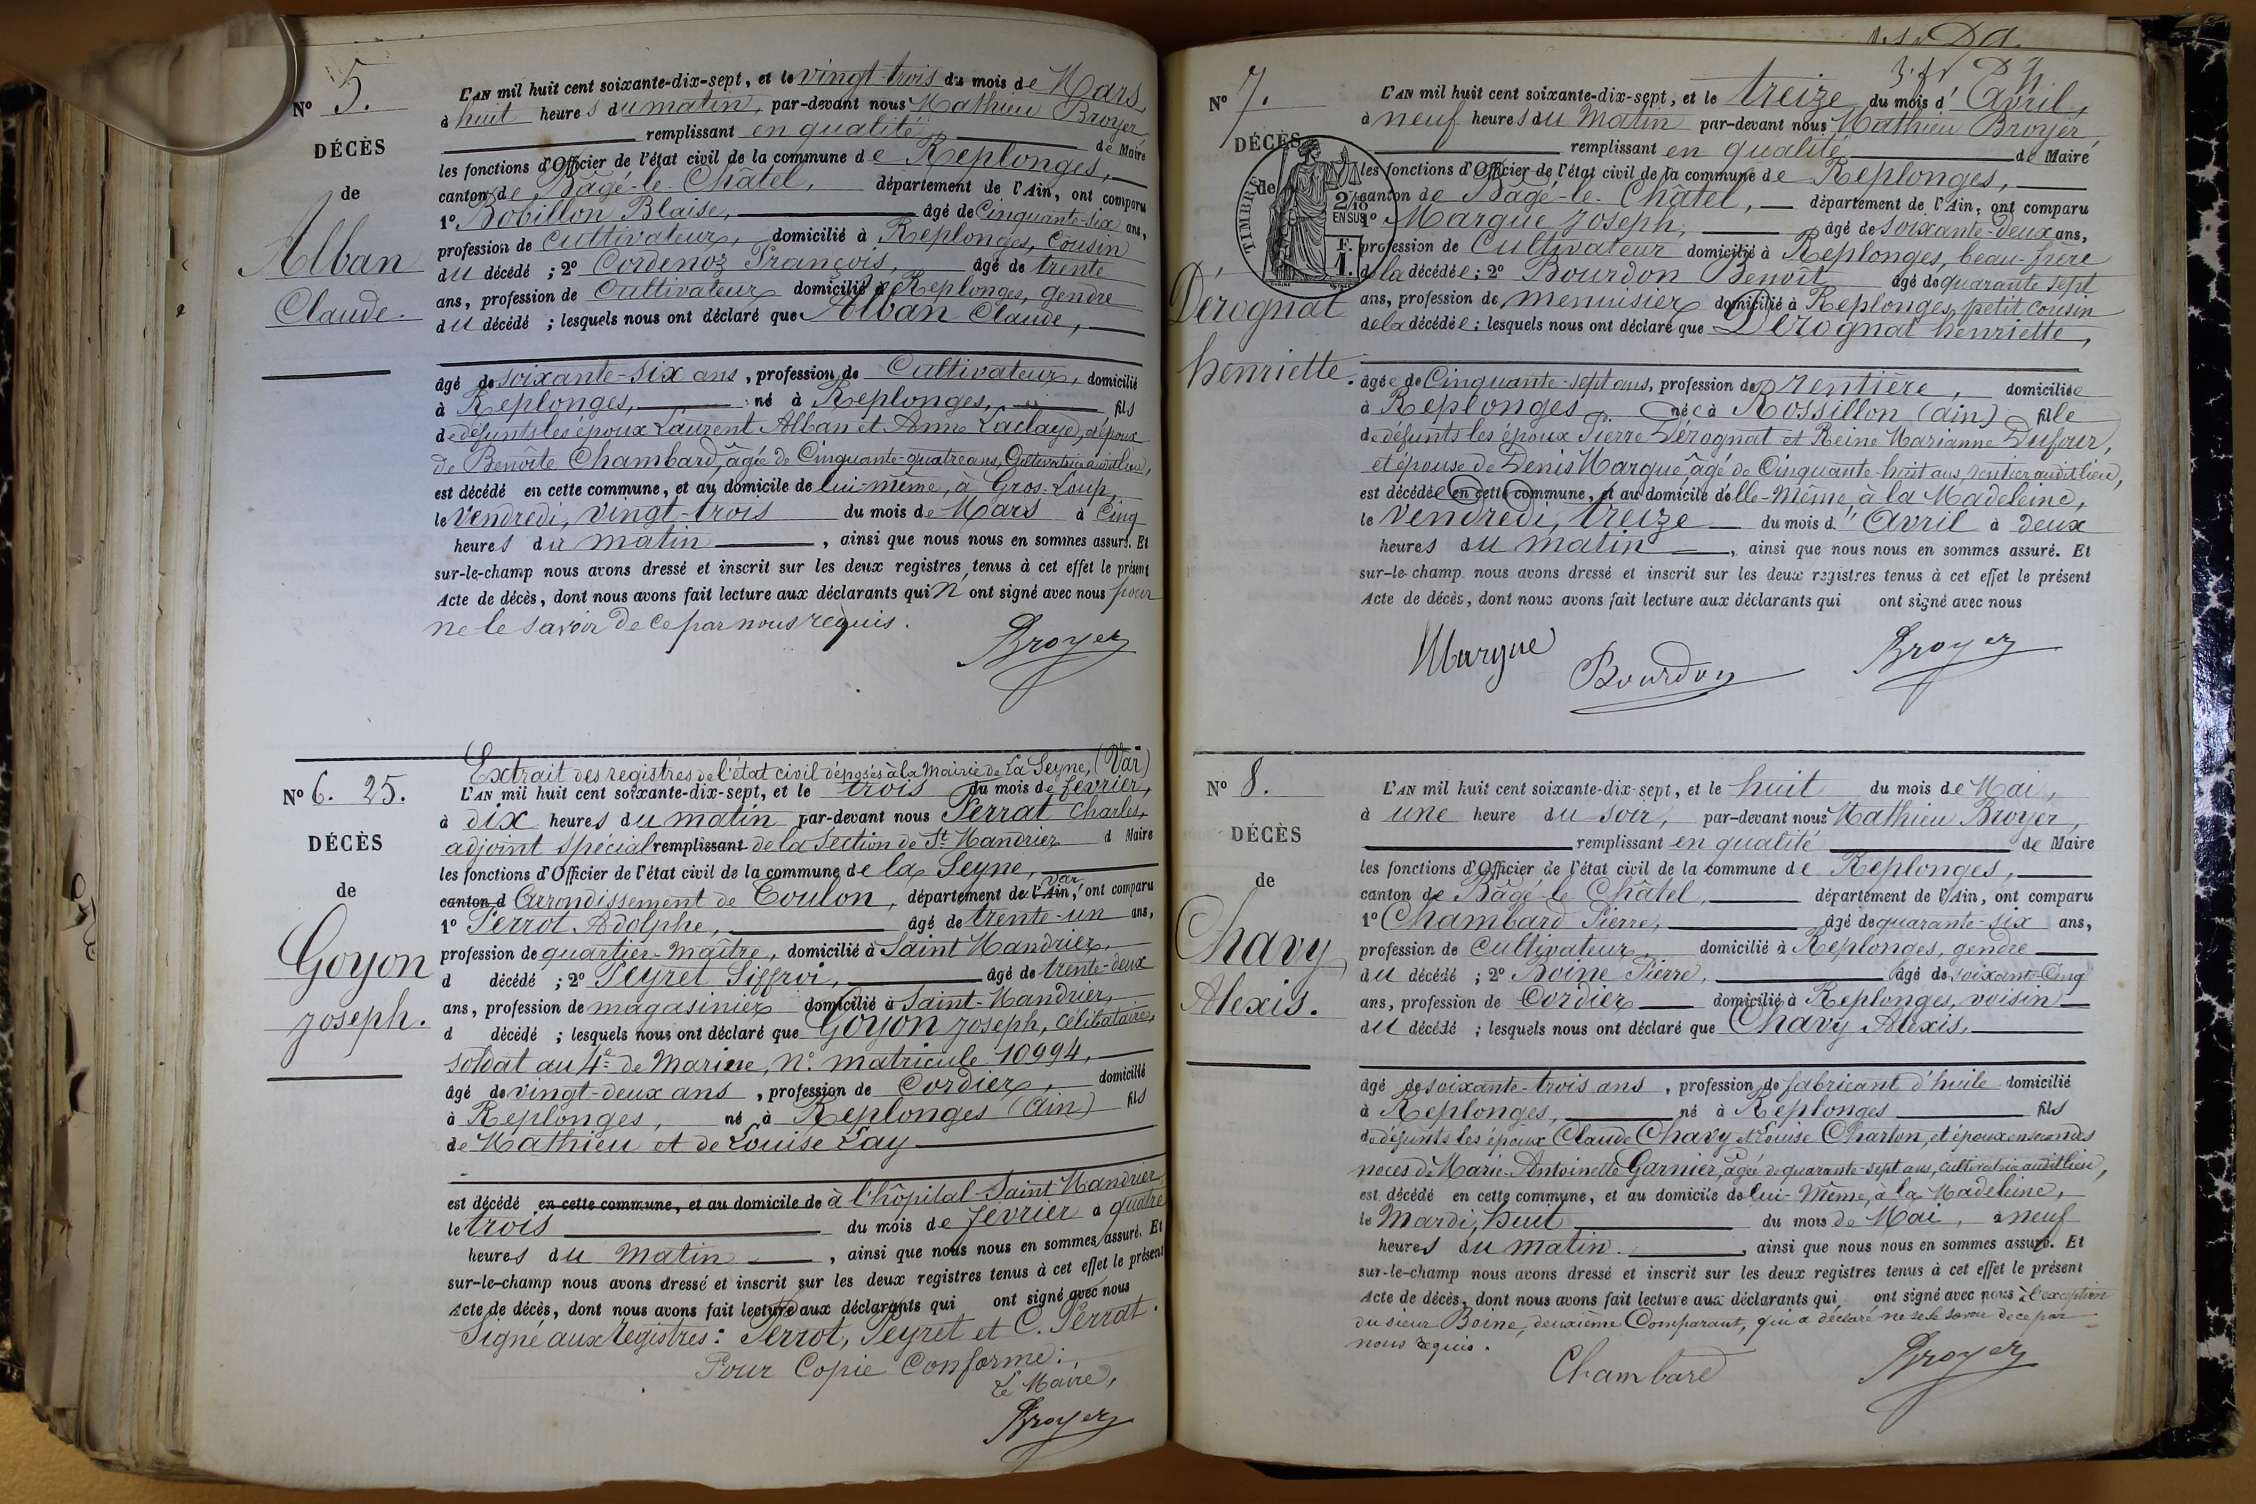 N° 5.
DÉCÈS
de
Alban
Claude.
L'AN mil huit cent soixante-dix-sept, et le vingt-trois du mois de Mars,
à huit heures du matin, par-devant nous Mathieu Broyer
remplissant en qualité de Maire
les fonctions d'Officier de l'état civil de la commune de Replonges,
canton de Bâgé-le-Châtel, département de l'Ain, ont comparu
1° Bobillon Blaise, âgé de Cinquante-six ans,
profession de Cultivateur, domicilié à Replonges, Cousin
du décédé ; 2° Cordenoz François, âgé de trente
ans, profession de Cultivateur domicilié à Replonges, gendre
du décédé ; lesquels nous ont déclaré que Alban Claude,
âgé de soixante-six ans, profession de Cultivateur, domicilié
à Replonges, né à Replonges, fils
de défunts les époux Laurent Alban et Anne Laclaye, et époux
de Benoîte Chambard, âgée de Cinquante-quatre ans, Cultivatrice audit lieu,
est décédé en cette commune, et au domicile de lui-même, à Gros-Loup,
le Vendredi, vingt-trois du mois de Mars à Cinq
heures du matin, ainsi que nous nous en sommes assuré. Et
sur-le-champ nous avons dressé et inscrit sur les deux registres tenus à cet effet le présent
Acte de décès, dont nous avons fait lecture aux déclarants qui n'ont signé avec nous pour
ne le savoir de ce par nous requis.
Broyer
N° 6. 25.
DÉCÈS
de
Goyon
Joseph.
Extrait des registres de l'état civil déposés à la Mairie de La Seyne, (Var)
L'AN mil huit cent soixante-dix-sept, et le trois du mois de février,
à dix heures du matin par-devant nous Perrat Charles,
adjoint spécial remplissant de la Section de St. Mandrier d Maire
les fonctions d'Officier de l'état civil de la commune de la Seyne,
canton d Arrondissement de Toulon, département de l'Ain, Var, ont comparu
1° Perrot Adolphe, âgé de trente-un ans,
profession de quartier-Maître, domicilié à Saint Mandrier,
d décédé ; 2° Peyret Siffroi, âgé de trente-deux
ans, profession de magasinier domicilié à Saint-Mandrier,
d décédé ; lesquels nous ont déclaré que Goyon Joseph, célibataire,
soldat au 4e de Marine, N° matricule 10994,
âgé de vingt-deux ans, profession de Cordier, domicilié
à Replonges, né à Replonges (Ain) fils
de Mathieu et de Louise Lay
est décédé en cette commune, et au domicile de à l'hôpital Saint Mandrier
le trois du mois de février à quatre
heures du matin, ainsi que nous nous en sommes assuré. Et
sur-le-champ nous avons dressé et inscrit sur les deux registres tenus à cet effet le présent
Acte de décès, dont nous avons fait lecture aux déclarants qui ont signé avec nous
Signé aux registres : Perrot, Peyret et C. Perrat.
Pour Copie Conforme :
Le Maire,
Broyer
N° 7.
DÉCÈS
de
TIMBRE
2/10
EN SUS
F.
1.
Dérognat
henriette.
L'AN mil huit cent soixante-dix-sept, et le treize du mois d'Avril,
à neuf heures du Matin par-devant nous Mathieu Broyer
remplissant en qualité de Maire
les fonctions d'Officier de l'état civil de la commune de Replonges,
canton de Bâgé-le-Châtel, département de l'Ain, ont comparu
1° Margue Joseph, âgé de soixante-deux ans,
profession de Cultivateur domicilié à Replonges, beau-frère
de la décédée ; 2° Bourdon Benoît âgé de quarante sept
ans, profession de menuisier domicilié à Replonges, petit cousin
de la décédée ; lesquels nous ont déclaré que Dérognat henriette,
âgée de Cinquante-sept ans, profession de rentière, domiciliée
à Replonges née à Rossillon (Ain) fille
de défunts les époux Pierre Dérognat et Reine Marianne Dufour,
et épouse de Denis Margue, âgé de Cinquante-huit ans, rentier audit lieu,
est décédée en cette commune, et au domicile d'elle-même, à la Madeleine,
le vendredi, treize du mois d'Avril à deux
heures du matin, ainsi que nous nous en sommes assuré. Et
sur-le-champ nous avons dressé et inscrit sur les deux registres tenus à cet effet le présent
Acte de décès, dont nous avons fait lecture aux déclarants qui ont signé avec nous
Margue Bourdon Broyer
N° 8.
DÉCÈS
de
Chavy
Alexis.
L'AN mil huit cent soixante-dix-sept, et le huit du mois de Mai,
à une heure du soir, par-devant nous Mathieu Broyer,
remplissant en qualité de Maire
les fonctions d'Officier de l'état civil de la commune de Replonges,
canton de Bâgé-le-Châtel, département de l'Ain, ont comparu
1° Chambard Pierre, âgé de quarante-six ans,
profession de Cultivateur, domicilié à Replonges, gendre
du décédé ; 2° Boine Pierre, âgé de soixante-Cinq
ans, profession de Cordier domicilié à Replonges, voisin
du décédé ; lesquels nous ont déclaré que Chavy Alexis,
âgé de soixante-trois ans, profession de fabricant d'huile domicilié
à Replonges, né à Replonges fils
de défunts les époux Claude Chavy et Louise Charton, et époux en secondes
noces de Marie-Antoinette Garnier, âgée de quarante-sept ans, cultivatrice audit lieu,
est décédé en cette commune, et au domicile de lui-Même, à la Madeleine,
le Mardi, huit du mois de Mai, à neuf
heures du matin, ainsi que nous nous en sommes assuré. Et
sur-le-champ nous avons dressé et inscrit sur les deux registres tenus à cet effet le présent
Acte de décès, dont nous avons fait lecture aux déclarants qui ont signé avec nous à l'exception
du sieur Boine, deuxième Comparant, qui a déclaré ne le savoir de ce par
nous requis.
Chambard Broyer